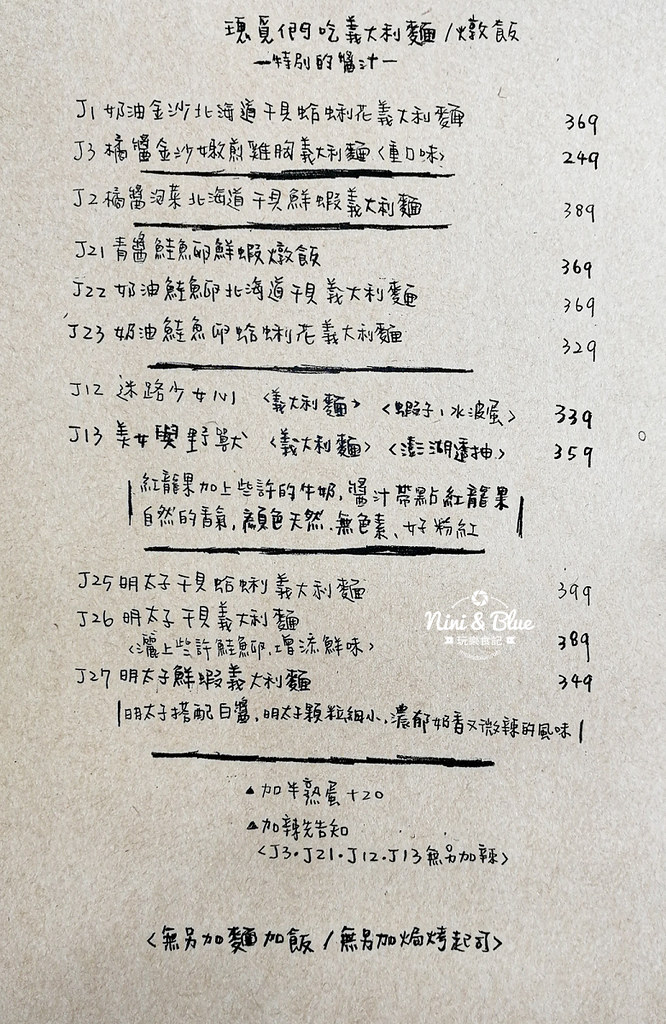 瑰覓們吃義大利麵/燉飯
—特別的醬汁—
J1 奶油金沙北海道干貝蛤蜊花義大利麵 369
J3 橘醬金沙嫩煎雞胸義大利麵<重口味> 249
J2 橘醬泡菜北海道干貝鮮蝦義大利麵 389
J21 青醬鮭魚卵鮮蝦燉飯 369
J22 奶油鮭魚卵北海道干貝義大利麵 369
J23 奶油鮭魚卵蛤蜊花義大利麵 329
J12 迷路少女心 <義大利麵> <蝦子、水波蛋> 339
J13 美女與野獸 <義大利麵> <澎湖透抽> 359
紅龍果加上些許的牛奶,醬汁帶點紅龍果
自然的香氣,顏色天然.無色素、好粉紅
J25 明太子干貝蛤蜊義大利麵 399
J26 明太子干貝義大利麵 389
<灑上些許鮭魚卵,增添鮮味>
Nini & Blue
玩樂食記
J27 明太子鮮蝦義大利麵 349
明太子搭配白醬,明太子顆粒細小、濃郁奶香又微辣的風味
▲加半熟蛋+20
▲加辣先告知
<J3.J21.J12.J13無另加辣>
<無另加麵加飯/無另加焗烤起司>